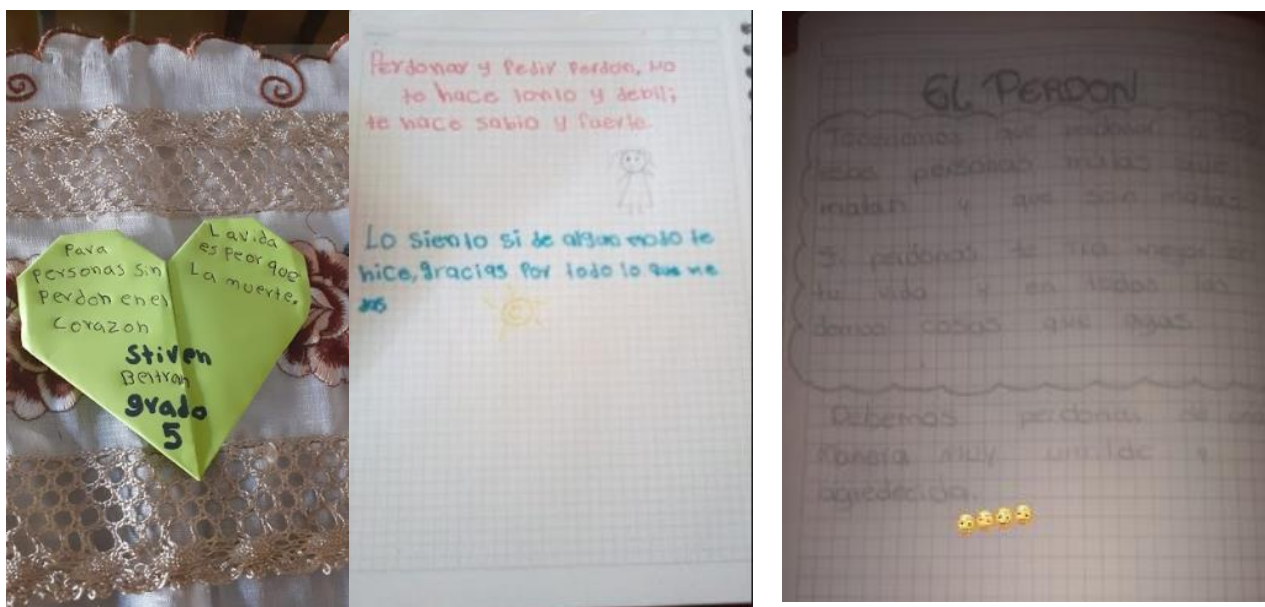 Para
personas sin
Perdon en el
Corazon
La vida
es peor que
La muerte.
Stiven
Beltran
grado
5
Perdonar y Pedir Perdon, no
te hace tonto y debil;
te hace sabio y fuerte.
Lo siento si de algun modo te
hice, gracias por todo lo que me
EL PERDON
que perdonar a
personas malas que
matan y que son malas
Si perdonas te irá mejor en
tu vida y en todas las
cosas que agas
Debemos perdonar de una
manera muy umilde y
agredecida.